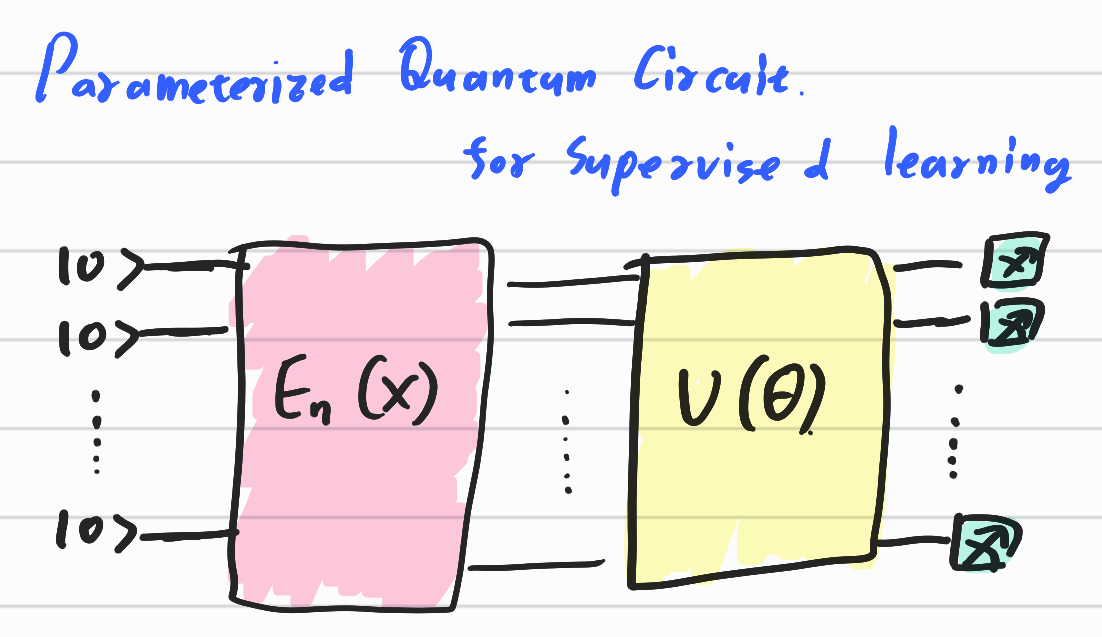 Parameterized Quantum Circuit.
for supervised learning
|0>
|0>
|0>
En (x)
U (θ)